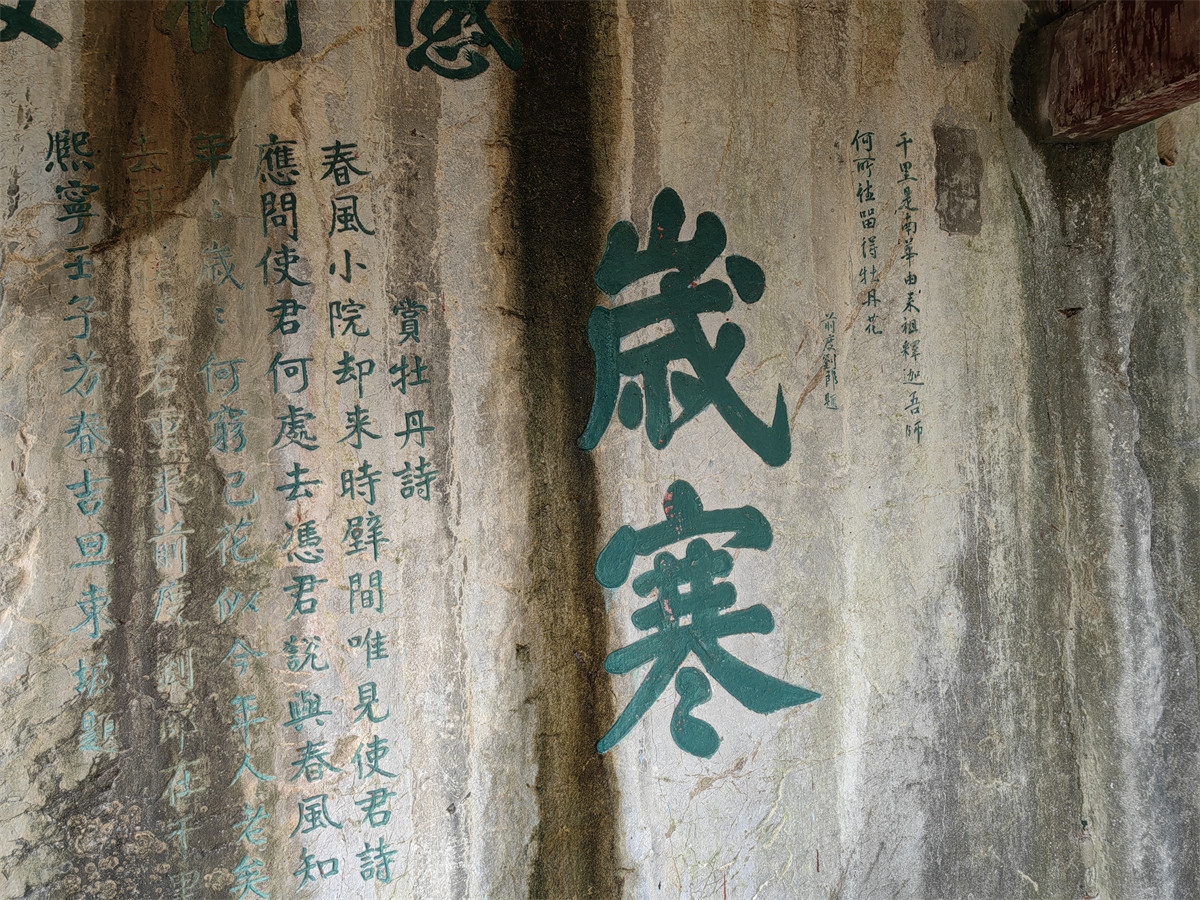 千里是南華由来祖釋迦吾師
何所往留得牡丹花
前度劉郎題
歲寒
賞牡丹詩
春風小院却来時壁間唯見使君詩
應問使君何處去憑君說與春風知
年〻歲〻何窮已花似今年人老矣
去年若重来前度劉郎在千里
熙寧壬子芳春吉旦東坡題